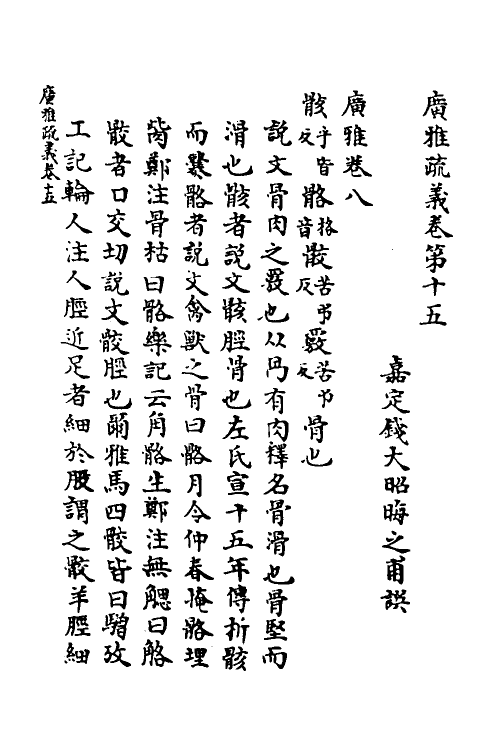 廣雅疏義卷第十五
嘉定錢大昭晦之甫譔
廣雅卷八
骸乎皆反骼音格骹苦弔反覈苦弔反骨也
說文骨肉之覈也从冎有肉釋名骨滑也骨堅而
滑也骸者說文骸脛骨也左氏宣十五年傳折骸
而爨骼者說文禽獸之骨曰骼月令仲春掩骼埋
胔鄭注骨枯曰骼樂記云角骼生鄭注無䚡曰骼
骹者口交切說文骹脛也爾雅馬四骹皆白驓攷
工記輪人注人脛近足者細於股謂之骹羊脛細
廣雅疏義卷十五